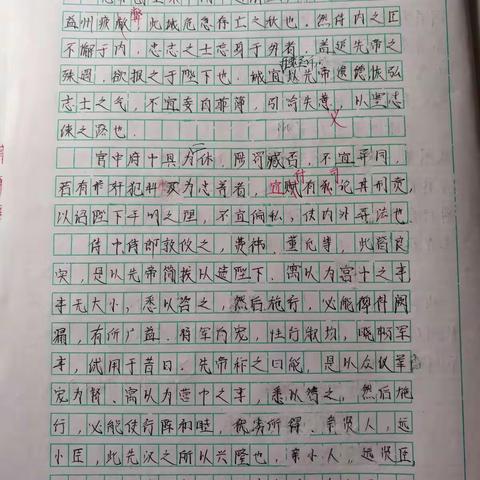 益州疲敝 此诚危急存亡之秋也，然侍内之臣
不懈于内，忠志之士忘身于外者，盖追先帝之
殊遇，欲报之于陛下也．诚宜以先帝遗德恢弘
志士之气，不宜妄自菲薄，引喻失义，以塞忠
谏之路也．
宫中府中具为一体，陟罚臧否，不宜异同，
若有作奸犯科 为忠善者，宜付有司论其刑赏，
以昭陛下平明之理，不宜偏私，使内外异法也
侍中侍郎敦攸之，费祎，董允等，此皆良
实，是以先帝简拔以遗陛下．离以为宫中之事
事无大小，悉以咨之，然后施行，必能裨补阙
漏，有所广益．将军向宠，性行淑均，晓畅军
事，试用于昔日．先帝称之曰能，是以众议举
宠为督．离以为营中之事，悉以赞之．然后施
行，必能使行阵和睦，优劣所得．亲贤人，远
小臣，此先汉之所以兴隆也．亲小人，远贤臣